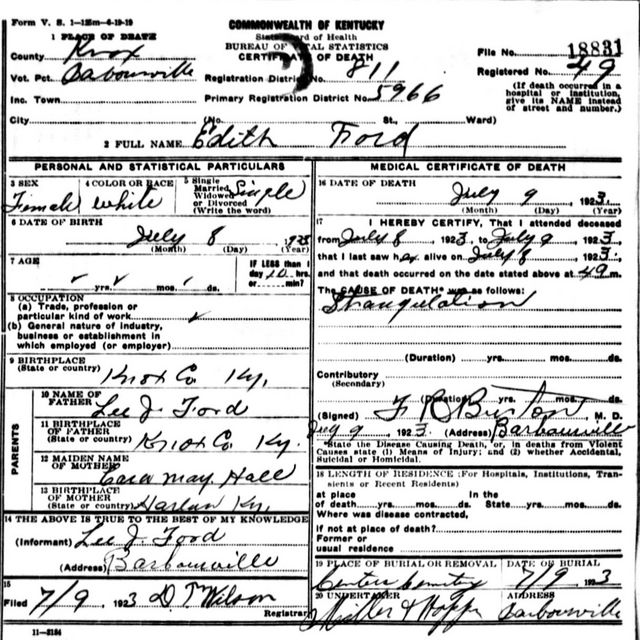 Form V. S. 1-125m-6-19-19
COMMONWEALTH OF KENTUCKY
State Board of Health
BUREAU OF VITAL STATISTICS
CERTIFICATE OF DEATH
1 PLACE OF DEATH
County Knox
Vot. Pct. Barbourville
Inc. Town
City (No. St., Ward)
Registration District No. 811
Primary Registration District No. 5966
File No. 18831
Registered No. 49
(If death occurred in a
hospital or institution,
give its NAME instead
of street and number.)
2 FULL NAME Edith Ford
PERSONAL AND STATISTICAL PARTICULARS
3 SEX Female
4 COLOR OR RACE white
5 Single
Married
Widowed
or Divorced
(Write the word) Single
6 DATE OF BIRTH
July 8
(Month) (Day) (Year)
7 AGE
yrs. mos. ds.
IF LESS than 1
day hrs.
or min.?
8 OCCUPATION
(a) Trade, profession or
particular kind of work
(b) General nature of industry,
business or establishment in
which employed (or employer)
9 BIRTHPLACE
(State or country) Knox Co. Ky.
PARENTS
10 NAME OF
FATHER Lee J. Ford
11 BIRTHPLACE
OF FATHER
(State or country) Knox Co. Ky.
12 MAIDEN NAME
OF MOTHER May Hall
13 BIRTHPLACE
OF MOTHER
(State or country) Harlan Ky.
14 THE ABOVE IS TRUE TO THE BEST OF MY KNOWLEDGE
(Informant) Lee J. Ford
(Address) Barbourville
15
Filed 7/9 1923 D. T. Wilson
Registrar
11-3184
MEDICAL CERTIFICATE OF DEATH
16 DATE OF DEATH
July 9 1923
(Month) (Day) (Year)
17 I HEREBY CERTIFY, That I attended deceased
from July 8, 1923, to July 9, 1923,
that I last saw her alive on July 8, 1923.
and that death occurred on the date stated above at m.
The CAUSE OF DEATH* was as follows:
Strangulation
(Duration) yrs. mos. ds.
Contributory
(Secondary)
(Duration) yrs. mos. ds.
(Signed) F R Burton, M. D.
July 9, 1923. (Address) Barbourville
*State the Disease Causing Death, or, in deaths from Violent
Causes state (1) Means of Injury; and (2) whether Accidental,
Suicidal or Homicidal.
18 LENGTH OF RESIDENCE (For Hospitals, Institutions, Tran-
sients or Recent Residents)
at place In the
of death yrs. mos. ds. State yrs. mos. ds.
Where was disease contracted,
if not at place of death?
Former or
usual residence
19 PLACE OF BURIAL OR REMOVAL DATE OF BURIAL
Cemetery 7/9 1923
20 UNDERTAKER ADDRESS
Miller & Hopper Barbourville